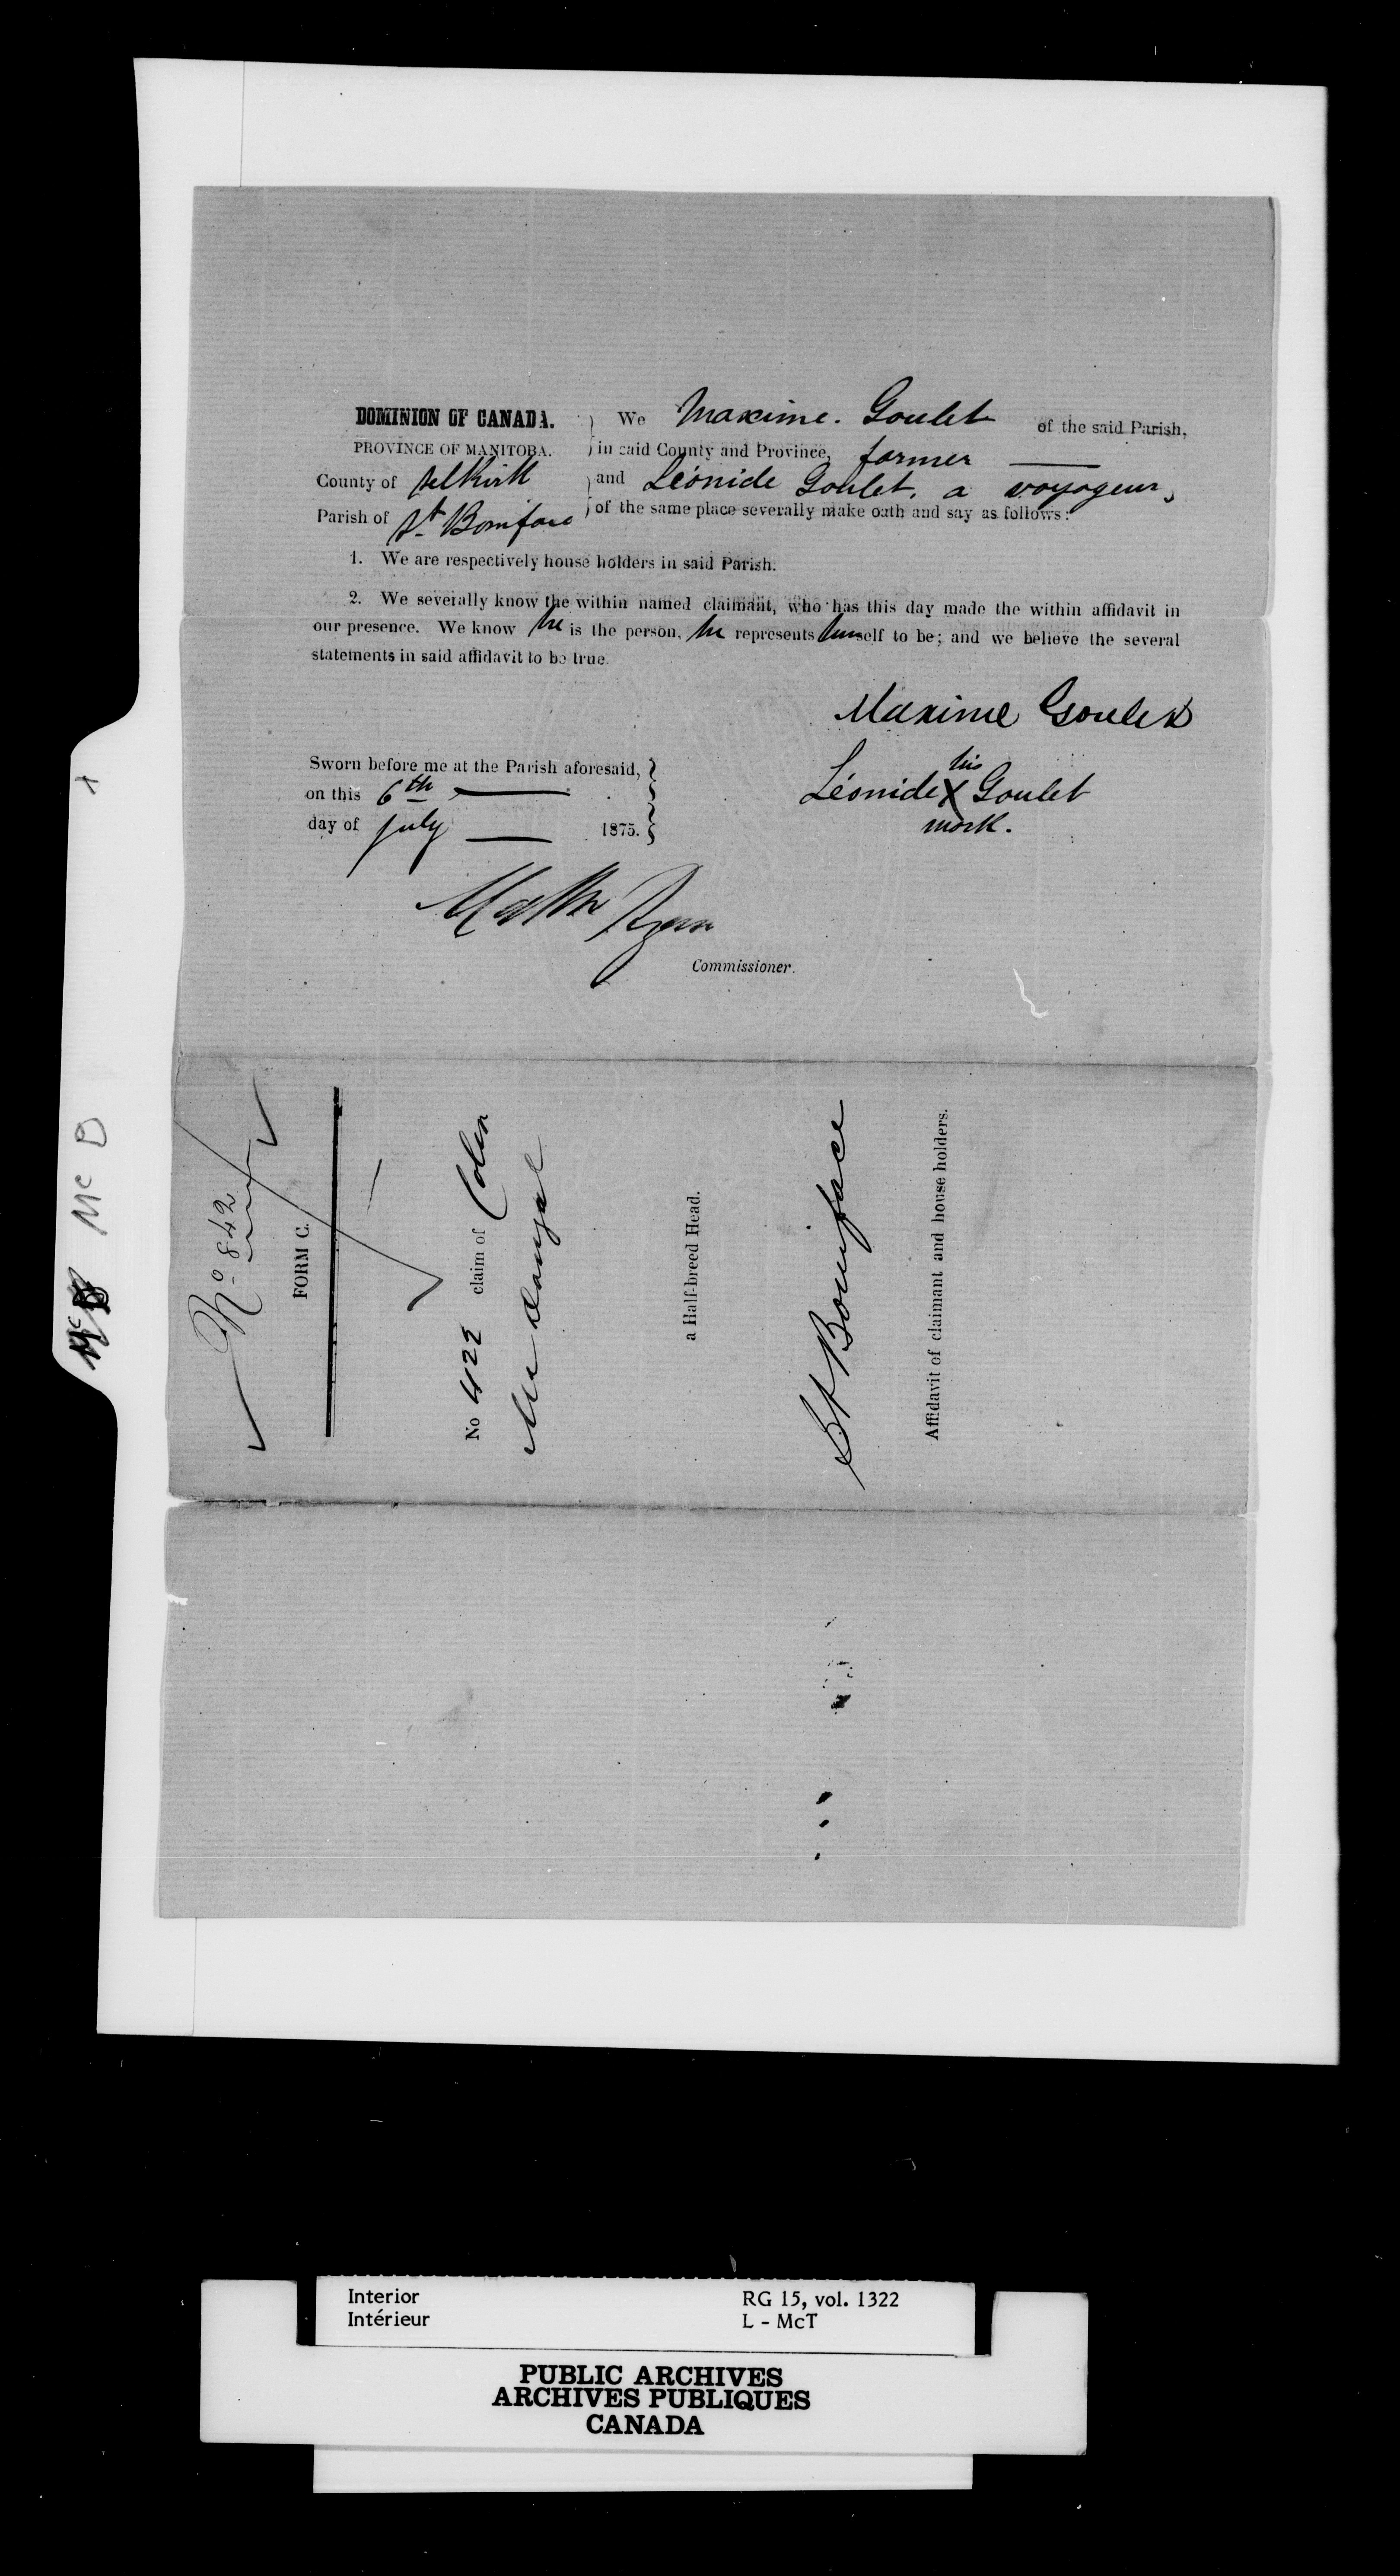 DOMINION OF CANADA.
PROVINCE OF MANITOBA.
County of Selkirk
Parish of St. Boniface
We Maxime. Goulet of the said Parish,
in said County and Province, farmer
and Léonide Goulet, a voyageur,
of the same place severally make oath and say as follows:
1. We are respectively house holders in said Parish.
2. We severally know the within named claimant, who has this day made the within affidavit in
our presence. We know he is the person, he represents himself to be; and we believe the several
statements in said affidavit to be true.
Maxime Goulet
Sworn before me at the Parish aforesaid,
on this 6th
day of July 1875.
his
Léonide X Goulet
mark.
Matthew Ryan
Commissioner.
No 842
FORM C.
No 422 claim of Colin
McDougal
a Half-breed Head.
St Boniface
Affidavit of claimant and house holders.
McD
McD
Interior
Intérieur
RG 15, vol. 1322
L - McT
PUBLIC ARCHIVES
ARCHIVES PUBLIQUES
CANADA